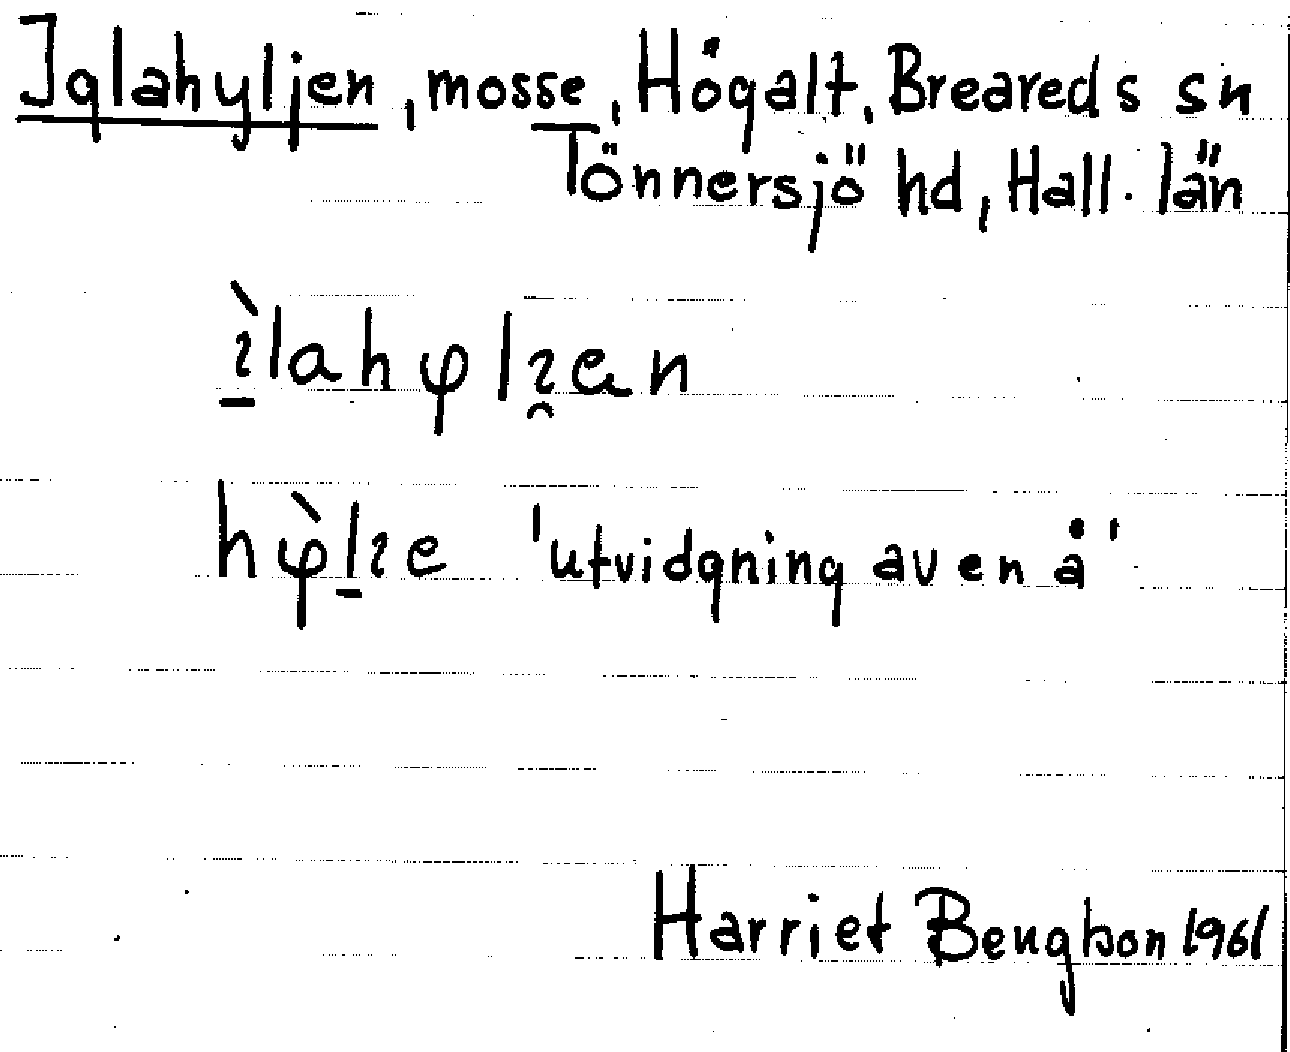 Iglahyljen, mosse, Högalt, Breareds sn
Tönnersjö hd, Hall. län
ı̀lahφlıen
hφ̀lıe 'utvidgning av en å'
Harriet Bengtson 1961